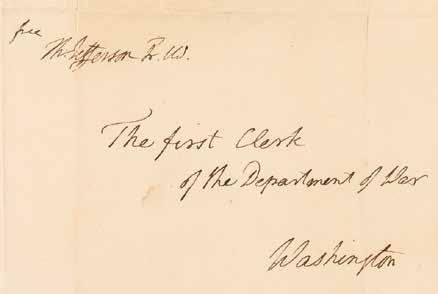 free
Th: Jefferson Pr. US.
The first Clerk
of the Department of War
Washington